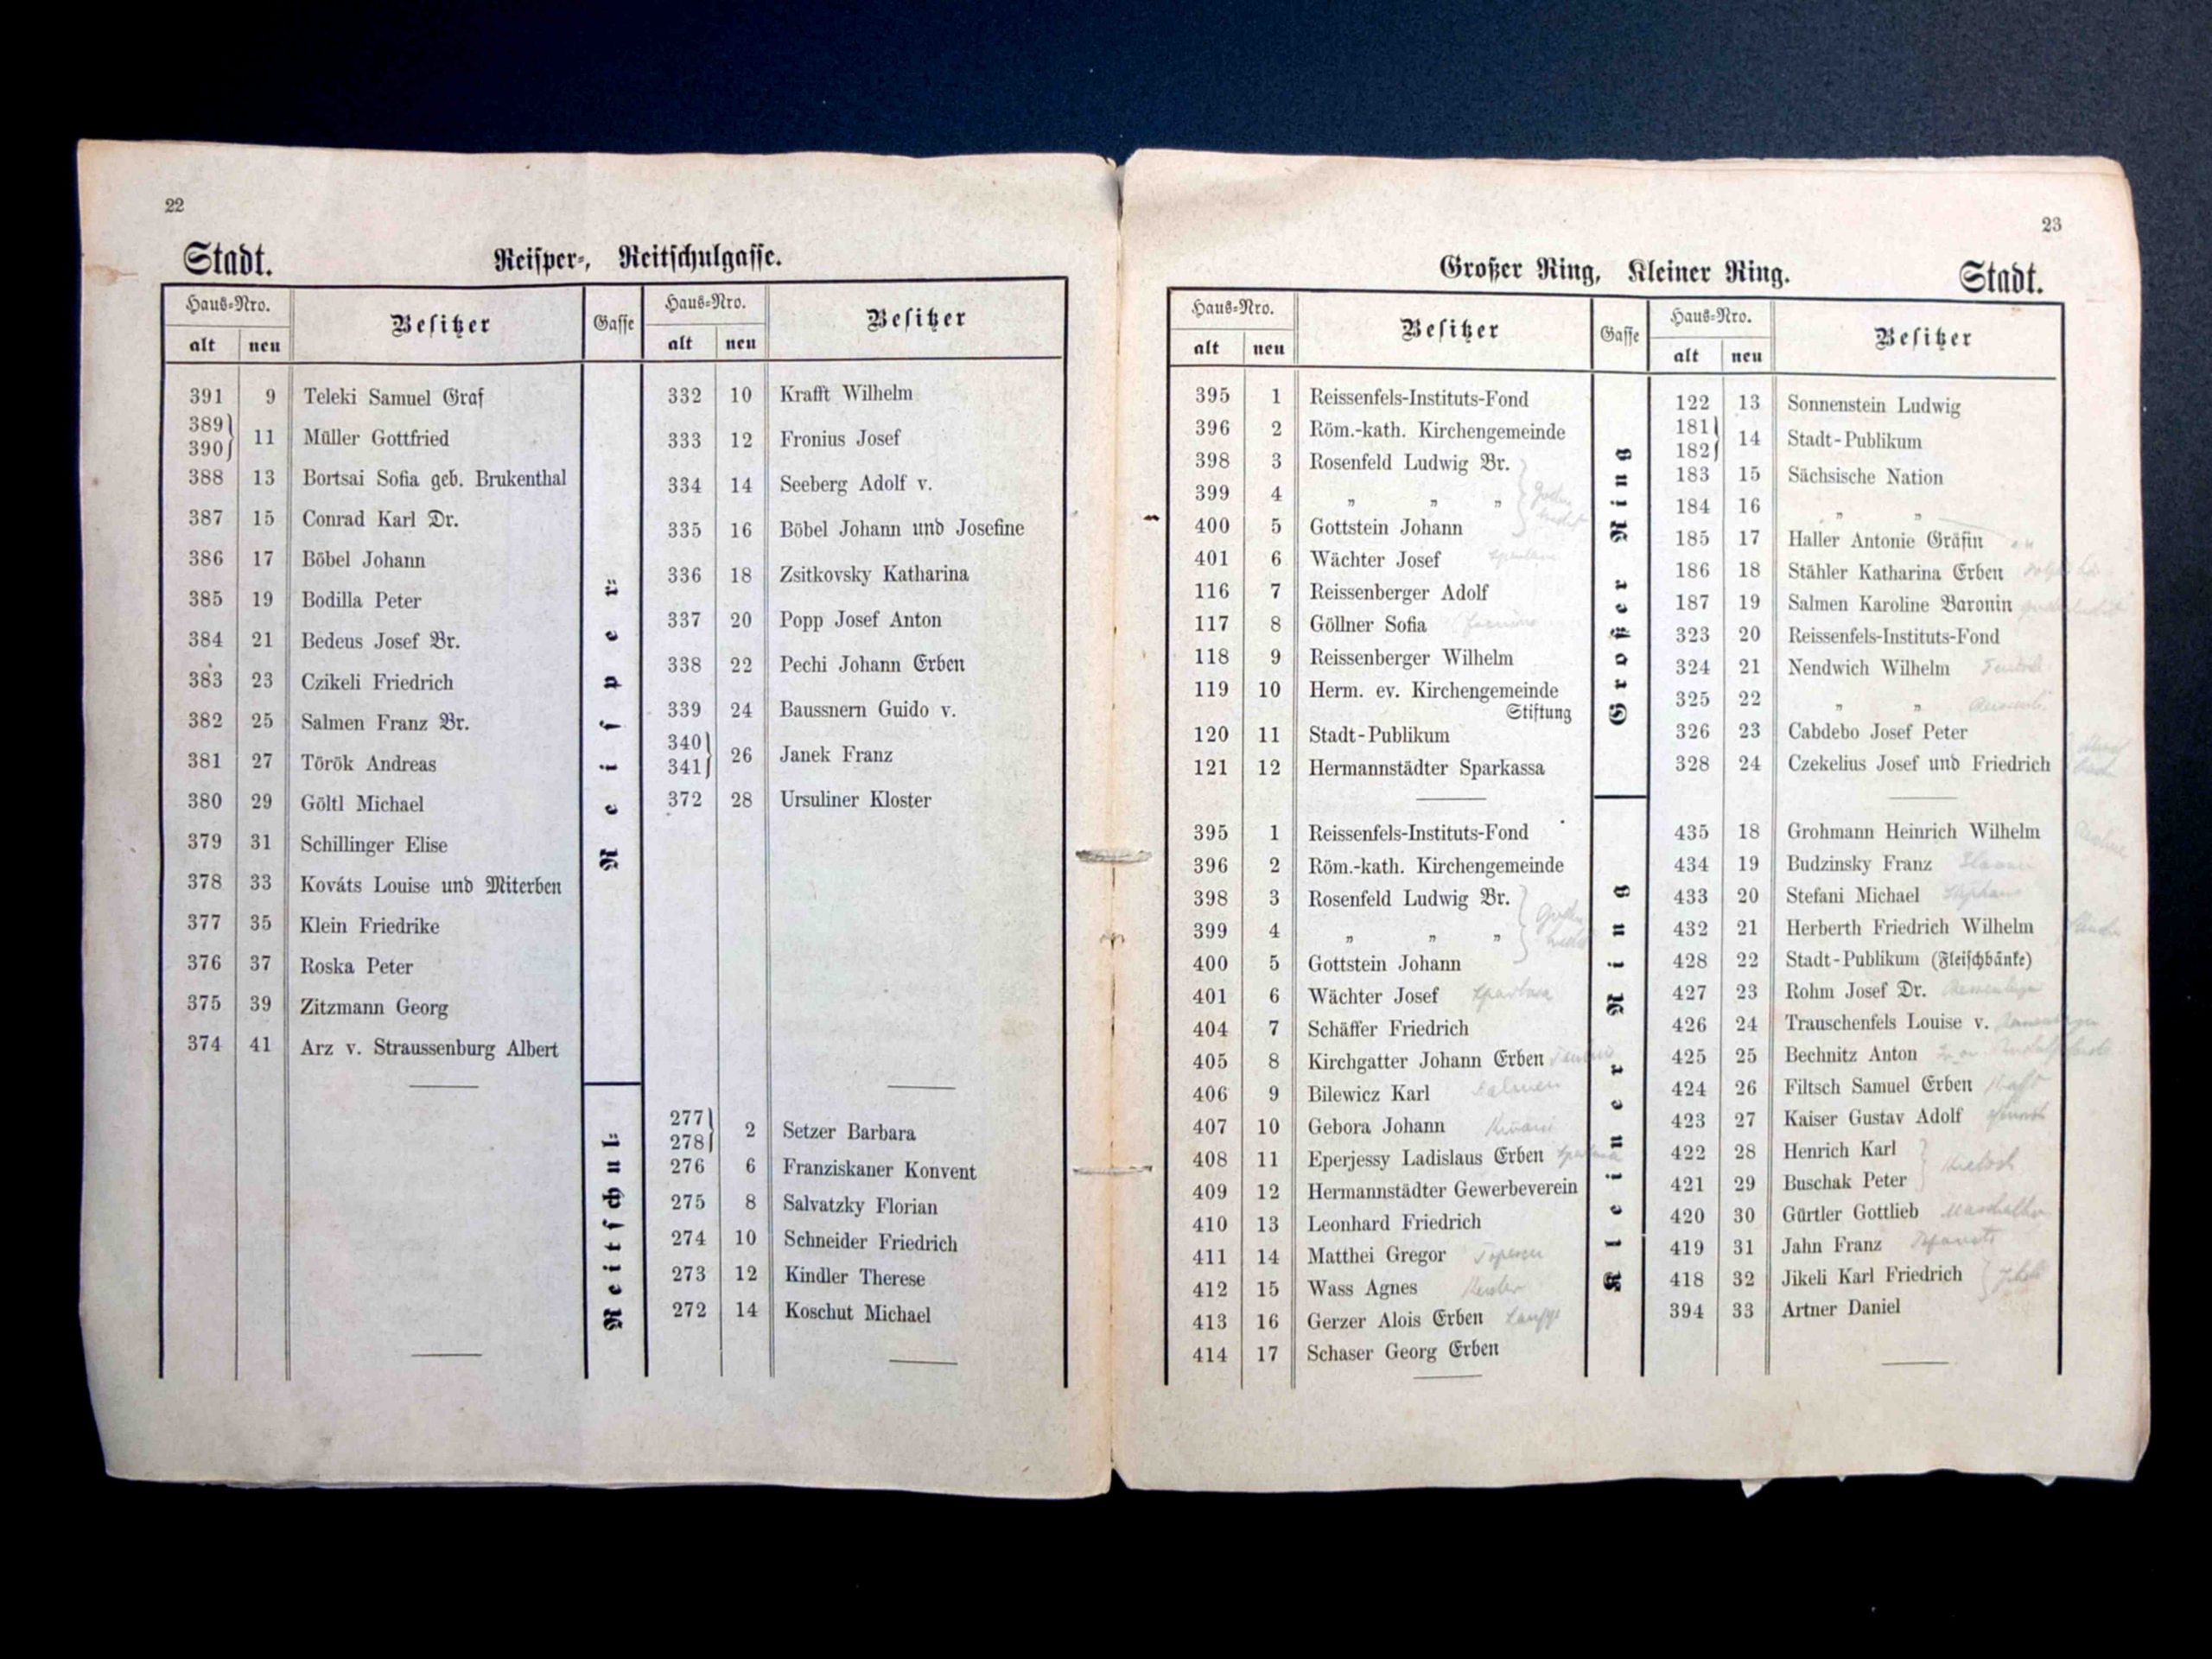 22
Stadt. Reisper-, Reitschulgasse.
Haus-Nro. Besitzer Gasse Haus-Nro. Besitzer
alt neu alt neu
Reisper-
391 9 Teleki Samuel Graf
389 390 11 Müller Gottfried
388 13 Bortsai Sofia geb. Brukenthal
387 15 Conrad Karl Dr.
386 17 Böbel Johann
385 19 Bodilla Peter
384 21 Bedeus Josef Br.
383 23 Czikeli Friedrich
382 25 Salmen Franz Br.
381 27 Török Andreas
380 29 Göltl Michael
379 31 Schillinger Elise
378 33 Kováts Louise und Miterben
377 35 Klein Friedrike
376 37 Roska Peter
375 39 Zitzmann Georg
374 41 Arz v. Straussenburg Albert
332 10 Krafft Wilhelm
333 12 Fronius Josef
334 14 Seeberg Adolf v.
335 16 Böbel Johann und Josefine
336 18 Zsitkovsky Katharina
337 20 Popp Josef Anton
338 22 Pechi Johann Erben
339 24 Baussnern Guido v.
340 341 26 Janek Franz
372 28 Ursuliner Kloster
Reitschul-
277 278 2 Setzer Barbara
276 6 Franziskaner Konvent
275 8 Salvatzky Florian
274 10 Schneider Friedrich
273 12 Kindler Therese
272 14 Koschut Michael
23
Großer Ring, Kleiner Ring. Stadt.
Haus-Nro. Besitzer Gasse Haus-Nro. Besitzer
alt neu alt neu
Großer Ring
395 1 Reissenfels-Instituts-Fond
396 2 Röm.-kath. Kirchengemeinde
398 3 Rosenfeld Ludwig Br.
399 4 „ „ „
400 5 Gottstein Johann
401 6 Wächter Josef
116 7 Reissenberger Adolf
117 8 Göllner Sofia
118 9 Reissenberger Wilhelm
119 10 Herm. ev. Kirchengemeinde
Stiftung
120 11 Stadt-Publikum
121 12 Hermannstädter Sparkassa
122 13 Sonnenstein Ludwig
181 182 14 Stadt-Publikum
183 15 Sächsische Nation
184 16 „ „
185 17 Haller Antonie Gräfin
186 18 Stähler Katharina Erben
187 19 Salmen Karoline Baronin
323 20 Reissenfels-Instituts-Fond
324 21 Nendwich Wilhelm
325 22 „ „
326 23 Cabdebo Josef Peter
328 24 Czekelius Josef und Friedrich
Kleiner Ring
395 1 Reissenfels-Instituts-Fond
396 2 Röm.-kath. Kirchengemeinde
398 3 Rosenfeld Ludwig Br.
399 4 „ „ „
400 5 Gottstein Johann
401 6 Wächter Josef
404 7 Schäffer Friedrich
405 8 Kirchgatter Johann Erben
406 9 Bilewicz Karl
407 10 Gebora Johann
408 11 Eperjessy Ladislaus Erben
409 12 Hermannstädter Gewerbeverein
410 13 Leonhard Friedrich
411 14 Matthei Gregor
412 15 Wass Agnes
413 16 Gerzer Alois Erben
414 17 Schaser Georg Erben
435 18 Grohmann Heinrich Wilhelm
434 19 Budzinsky Franz
433 20 Stefani Michael
432 21 Herberth Friedrich Wilhelm
428 22 Stadt-Publikum (Fleischbänke)
427 23 Rohm Josef Dr.
426 24 Trauschenfels Louise v.
425 25 Bechnitz Anton
424 26 Filtsch Samuel Erben
423 27 Kaiser Gustav Adolf
422 28 Henrich Karl
421 29 Buschak Peter
420 30 Gürtler Gottlieb
419 31 Jahn Franz
418 32 Jikeli Karl Friedrich
394 33 Artner Daniel